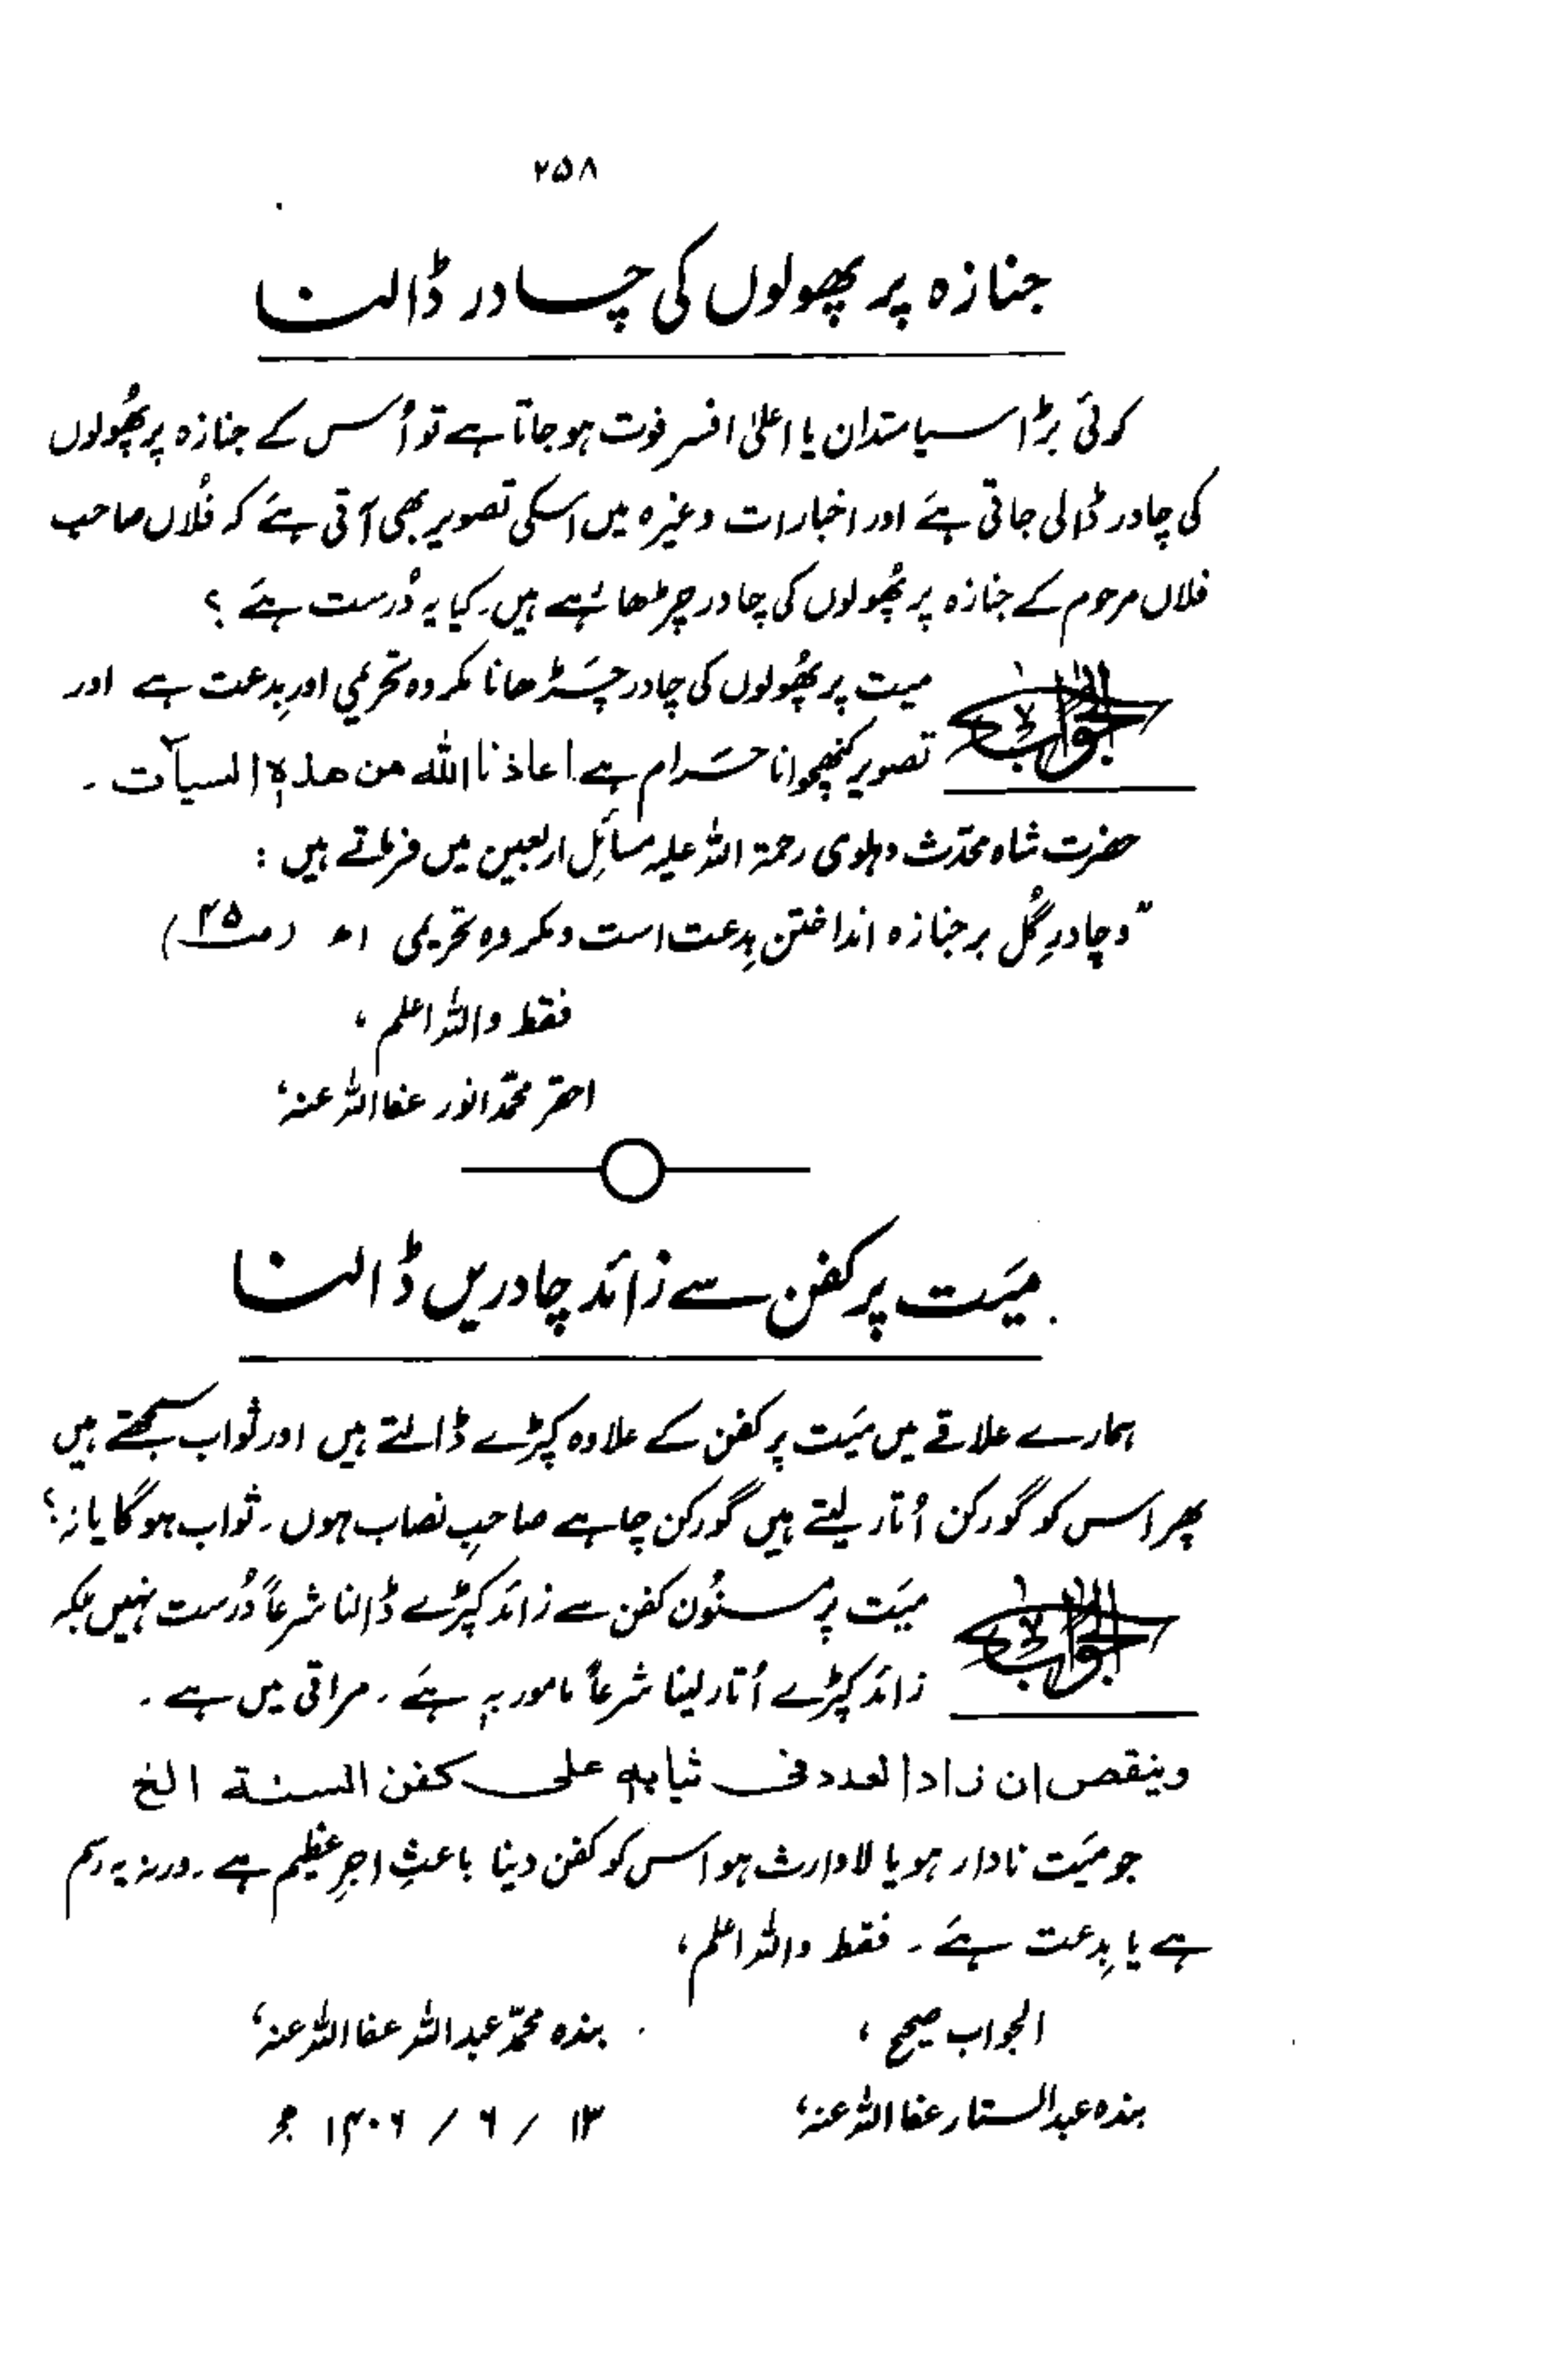 ۲۵۸
جنازہ پر پھولوں کی چادر ڈالنا
کوئی بڑا سیاستدان یا اعلیٰ افسر فوت ہو جاتا ہے تو اُس کے جنازہ پر پھُولوں
کی چادر ڈالی جاتی ہے اور اخبارات وغیرہ میں اسکی تصویر بھی آتی ہے کہ فُلاں صاحب
فلاں مرحوم کے جنازہ پر پھُولوں کی چادر چڑھا رہے ہیں۔ کیا یہ دُرست ہے ؟
الجواب میت پر پھُولوں کی چادر چڑھانا مکروہ تحریمی اور بِدعت ہے اور
تصویر کھنچوانا حَرام ہے۔ اعاذنا اللہ من ھذہ السیآت ۔
حضرت شاہ محدّث دہلوی رحمۃ اللہ علیہ مسائلِ اربعین میں فرماتے ہیں :
"و چادرِ گُل بر جنازہ انداختن بِدعت است و مکروہ تحریمی اھ (ص۴۵)
فقط واللہ اعلم ،
احقر محمّد انور عفا اللہ عنہ،
میّت پر کفن سے زائد چادریں ڈالنا
ہمارے علاقے میں میّت پر کفن کے علاوہ کپڑے ڈالتے ہیں اور ثواب سمجھتے ہیں
پھر اس کو گورکن اُتار لیتے ہیں گورکن چاہے صاحبِ نصاب ہوں۔ ثواب ہوگا یا نہ؟
الجواب میّت پر مسنُون کفن سے زائد کپڑے ڈالنا شرعاً دُرست نہیں بلکہ
زائد کپڑے اُتار لینا شرعاً مامور بہٖ ہے ۔ مراقی میں ہے ۔
وینقص ان زاد العدد فی ثیابہ علی کفن السنۃ الخ
جو میّت نادار ہو یا لاوارث ہو اس کو کفن دینا باعثِ اجرِ عظیم ہے ۔ ورنہ یہ رسم
ہے یا بِدعت ہے ۔ فقط واللہ اعلم ،
الجواب صحیح ، بندہ محمّد عبد اللہ عفا اللہ عنہ،
بندہ عبد الستار عفا اللہ عنہ، ۱۳ / ۶ / ۱۴۰۶ ھ